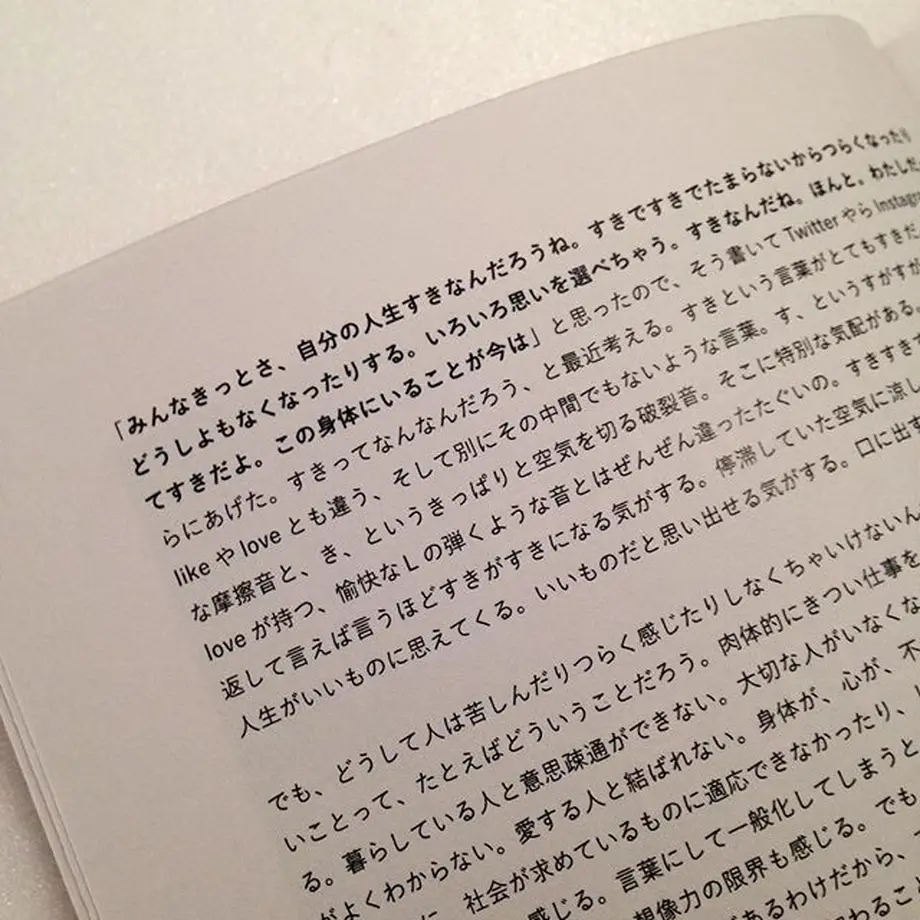 「みんなきっとさ、自分の人生すきなんだろうね。すきですきでたまらないからつらくなったり
どうしよもなくなったりする。いろいろ思いを選べちゃう。すきなんだね。ほんと。わたしだ
てすきだよ。この身体にいることが今は」と思ったので、そう書いてTwitterやらInstagra
らにあげた。すきってなんなんだろう、と最近考える。すきという言葉がとてもすきだ
likeやloveとも違う、そして別にその中間でもないような言葉。す、というすがすが
な摩擦音と、き、というきっぱりと空気を切る破裂音。そこに特別な気配がある。
loveが持つ、愉快なLの弾くような音とはぜんぜん違ったたぐいの。すきすきす
返して言えば言うほどすきがすきになる気がする。停滞していた空気に涼し
人生がいいものに思えてくる。いいものだと思い出せる気がする。口に出す
でも、どうして人は苦しんだりつらく感じたりしなくちゃいけないん
いことって、たとえばどういうことだろう。肉体的にきつい仕事を
る。暮らしている人と意思疎通ができない。大切な人がいなくな
がよくわからない。愛する人と結ばれない。身体が、心が、不
に、社会が求めているものに適応できなかったり、し
感じる。言葉にして一般化してしまうと
想像力の限界も感じる。でも
あるわけだから、
わること